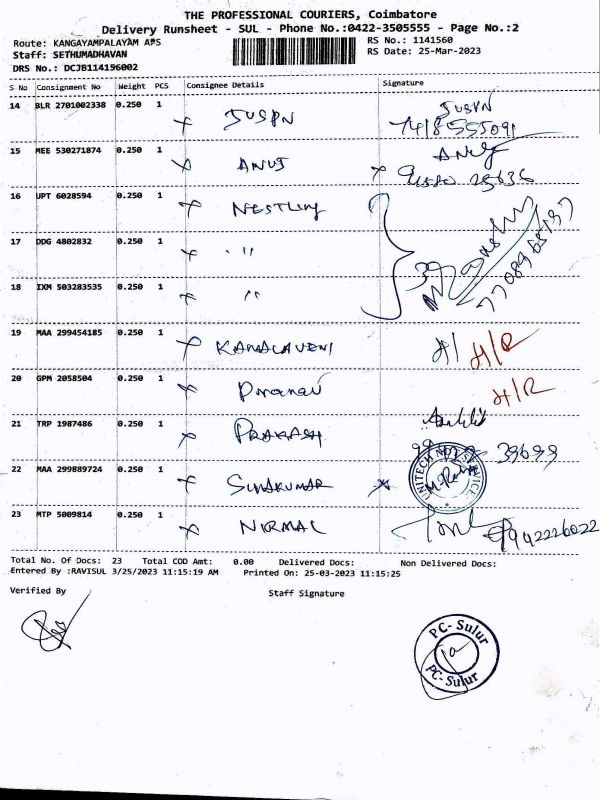 THE PROFESSIONAL COURIERS, Coimbatore
Delivery Runsheet - SUL - Phone No.:0422-3505555 - Page No.:2
Route: KANGAYAMPALAYAM APS
RS No.: 1141560
Staff: SETHUMADHAVAN
RS Date: 25-Mar-2023
DRS No.: DCJB114156002
S No Consignment No Weight PCS Consignee Details Signature
14 BLR 2701002338 0.250 1 SUSPN SUSPN
7418555091
15 MEE 530271874 0.250 1 ANUJ ANUJ
25636
16 UPT 6028594 0.250 1 NESTLING
17 DDG 4802832 0.250 1 "
7708968197
18 IXM 503283535 0.250 1 "
19 MAA 299454185 0.250 1 KAMALAVENI H/ H/R
20 GPM 2058504 0.250 1 Pranav H/R
21 TRP 1987486 0.250 1 PRAKASH
39699
22 MAA 299889724 0.250 1 SIVAKUMAR UNITECH
23 MTP 5009814 0.250 1 NIRMAL 9942226022
Total No. Of Docs: 23 Total COD Amt: 0.00 Delivered Docs: Non Delivered Docs:
Entered By :RAVISUL 3/25/2023 11:15:19 AM Printed On: 25-03-2023 11:15:25
Verified By Staff Signature
PC- Sulur
PC- Sulur